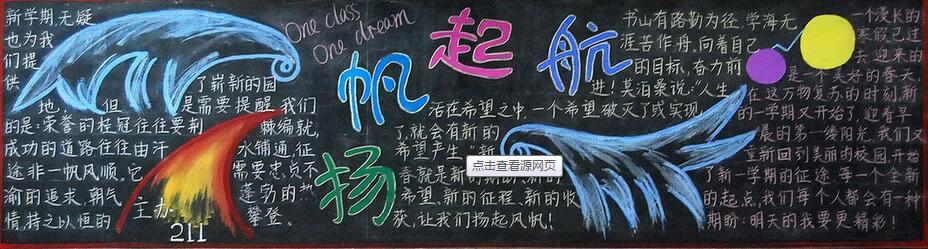 新学期,无疑
也为我
们提
供
了崭新的园
地,但是需要提醒我们
的是:荣誉的桂冠往往要荆棘编就,
成功的道路往往由汗水铺通,征
途非一帆风顺。它需要忠贞不
渝的追求,朝气蓬勃的
情,持之以恒的攀登。
主办
211
One class
One dream
扬帆起航
书山有路勤为径,学海无
涯苦作舟。向着自己
的目标,奋力前
进!莫泊桑说:"人生
活在希望之中,一个希望破灭了或实现
了,就会有新的
希望产生。"新
春就是新
希望、新的征程、新的收
获,让我们扬起风帆!
点击查看源网页
一个漫长的
寒假已过
去,迎来的
是一个美好的春天,
在这万物复苏的时刻,新
的一学期又开始了,迎着早
晨的第一缕阳光,我们又
重新回到美丽的校园,开始
了新一学期的征途。每一个全新
的起点,我们每个人都会有一种
期盼:明天的我要更精彩!